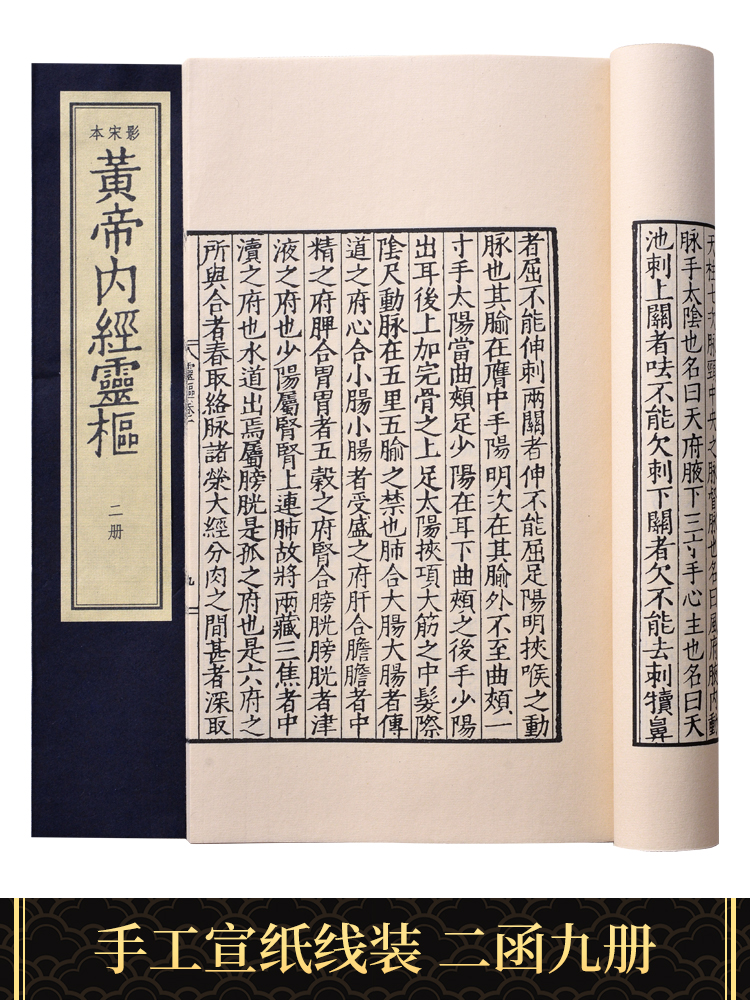 影宋本
黃帝內經靈樞
二册
天柱七次脉頸中央之脉督脉也名曰風府腋內動
脉手太陰也名曰天府腋下三寸手心主也名曰天
池刺上關者呿不能欠刺下關者欠不能去刺犢鼻
者屈不能伸刺兩關者伸不能屈足陽明挾喉之動
脉也其腧在膺中手陽明次在其腧外不至曲頰一
寸手太陽當曲頰足少陽在耳下曲頰之後手少陽
出耳後上加完骨之上足太陽挾項大筋之中髮際
陰尺動脉在五里五腧之禁也肺合大腸大腸者傳
道之府心合小腸小腸者受盛之府肝合膽膽者中
精之府脾合胃胃者五穀之府腎合膀胱膀胱者津
液之府也少陽屬腎腎上連肺故將兩藏三焦者中
瀆之府也水道出焉屬膀胱是孤之府也是六府之
所與合者春取絡脉諸滎大經分肉之間甚者深取
靈樞
九
手工宣纸线装 二函九册